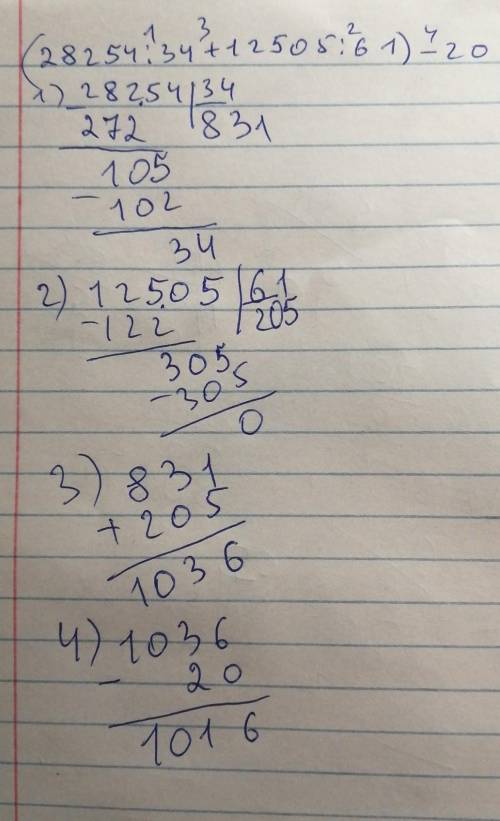 (28254:¹34+³12505:²61)-⁴20
1) 28254|34
-272 831
105
-102
34
2) 12505|61
-122 205
305
-305
0
3) 831
+205
1036
4) 1036
- 20
1016